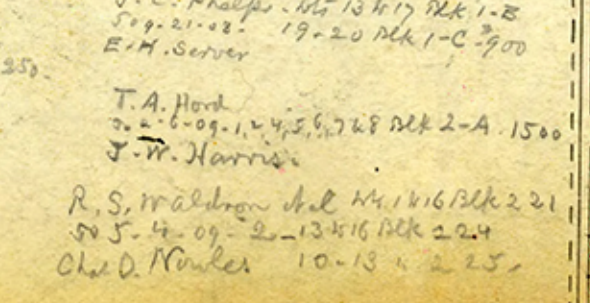 Phelps - Lots 13 to 17 Blk 1-B
5 09-21-08- 19-20 Blk 1-C - 900
E. H. Server
250-
T. A. Hord
6-09-1, 2, 4, 5, 6, 7 & 8 Blk 2-A. 1500
J. W. Harris.
R. S. Waldron 1 to 16 Blk 221
5-4-09-2-13 to 16 Blk 224
Chas D. Nowles 10-13 " 225